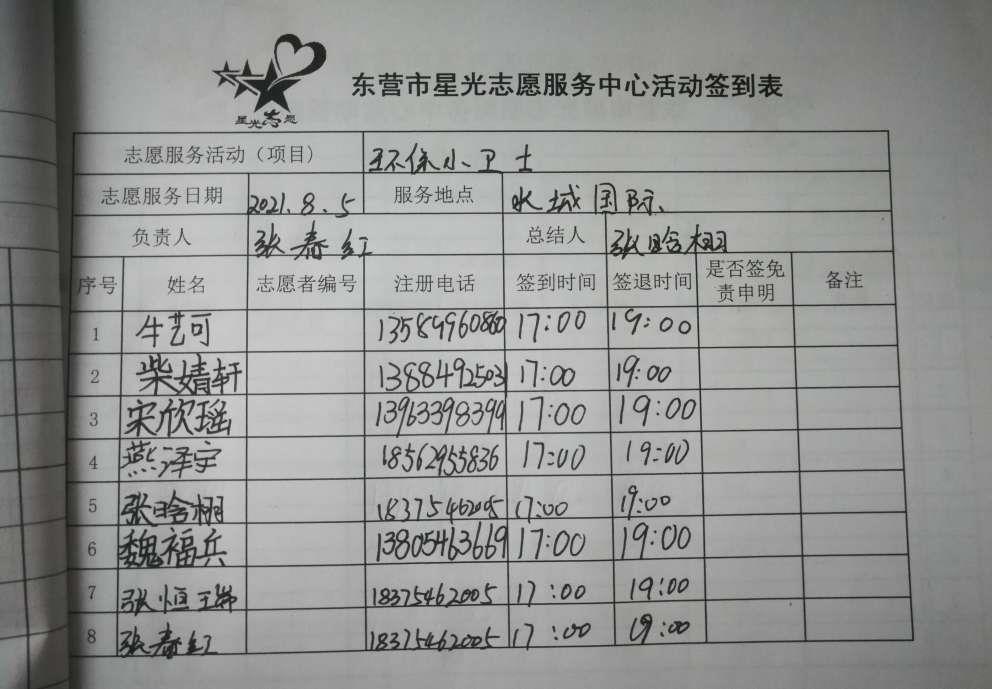 星光志愿
东营市星光志愿服务中心活动签到表
志愿服务活动（项目） 环保小卫士
志愿服务日期 2021.8.5 服务地点 水城国际
负责人 张春红 总结人 张晗栩
序号 姓名 志愿者编号 注册电话 签到时间 签退时间 是否签免责申明 备注
1 牛艺可 13589960860 17:00 19:00
2 柴婧轩 13884925031 17:00 19:00
3 宋欣瑶 13963398399 17:00 19:00
4 燕泽宇 18562955836 17:00 19:00
5 张晗栩 18375462005 17:00 19:00
6 魏福兵 13805463669 17:00 19:00
7 张恒 18375462005 17:00 19:00
8 张春红 18375462005 17:00 19:00